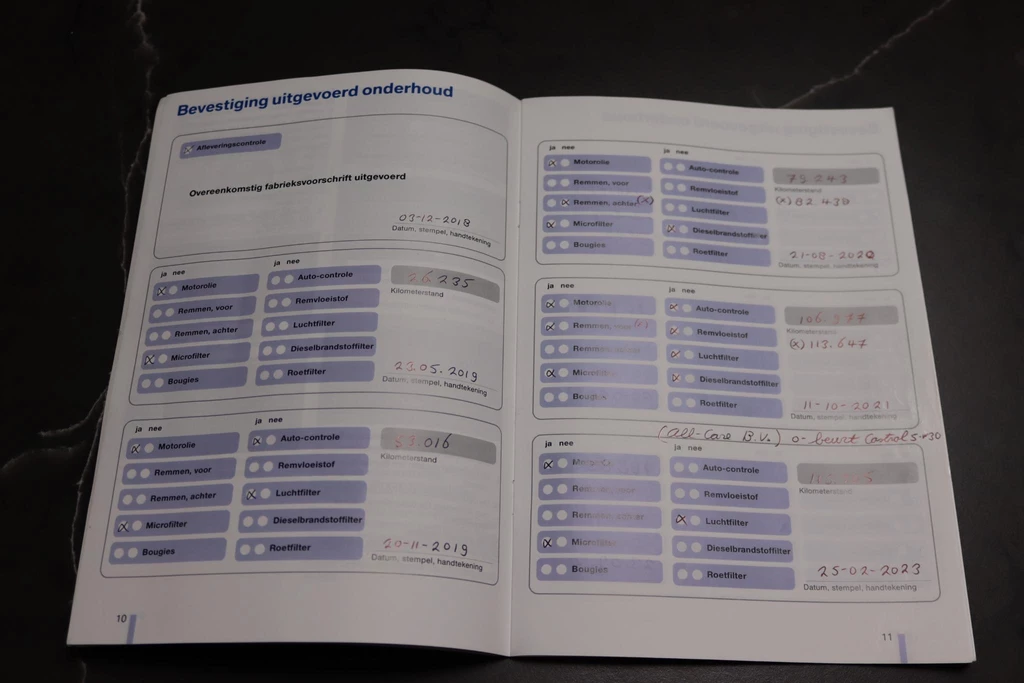 Bevestiging uitgevoerd onderhoud
Afleveringscontrole
Overeenkomstig fabrieksvoorschrift uitgevoerd
03-12-2018
Datum, stempel, handtekening
ja nee
Motorolie
Remmen, voor
Remmen, achter
Microfilter
Bougies
Auto-controle
Remvloeistof
Luchtfilter
Dieselbrandstoffilter
Roetfilter
26 235
Kilometerstand
23.05.2019
Datum, stempel, handtekening
ja nee
Motorolie
Remmen, voor
Remmen, achter
Microfilter
Bougies
ja nee
Auto-controle
Remvloeistof
Luchtfilter
Dieselbrandstoffilter
Roetfilter
53.016
Kilometerstand
20-11-2019
Datum, stempel, handtekening
10
ja nee
Motorolie
Remmen, voor
Remmen, achter (x)
Microfilter
Bougies
ja nee
Auto-controle
Remvloeistof
Luchtfilter
Dieselbrandstoffilter
Roetfilter
79 243
Kilometerstand
(x) 82 430
21-08-2020
Datum, stempel, handtekening
ja nee
Motorolie
Remmen, voor
Remmen, achter
Microfilter
Bougies
ja nee
Auto-controle
Remvloeistof
Luchtfilter
Dieselbrandstoffilter
Roetfilter
Kilometerstand
(x) 113.647
11-10-2021
Datum, stempel, handtekening
(All-Care B.V.) 0-beurt
ja nee
Motorolie
Remmen, voor
Remmen, achter
Microfilter
Bougies
ja nee
Auto-controle
Remvloeistof
Luchtfilter
Dieselbrandstoffilter
Roetfilter
Kilometerstand
25-02-2023
Datum, stempel, handtekening
11